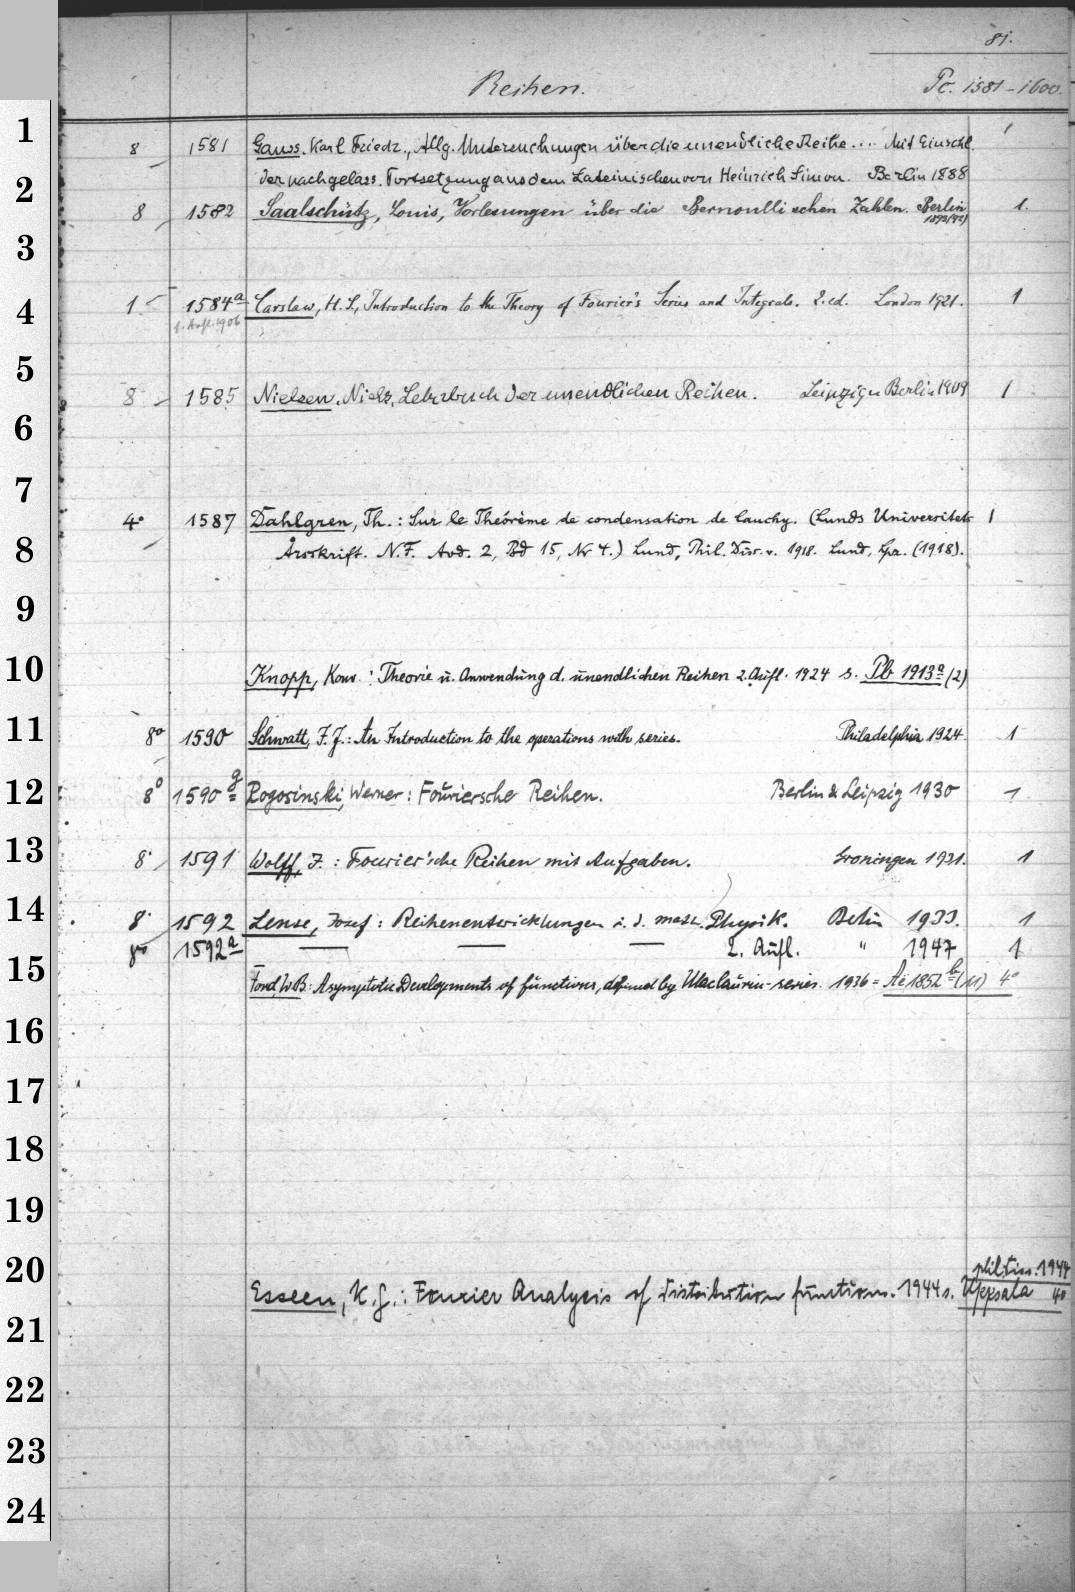 81.
Reihen. Pc. 1581-1600.
1
8 1581 Gauss, Karl Friedr., Allg. Untersuchungen über die unendliche Reihe ... Mit Einschl. 1
2
der nachgelass. Fortsetzung aus dem Lateinischen von Heinrich Simon. Berlin 1888
8 1582 Saalschütz, Louis, Vorlesungen über die Bernoullischen Zahlen. Berlin 1.
3
4
1 1584a Carslaw, H. S., Introduction to the Theory of Fourier's Series and Integrals. 2. ed. London 1921. 1
1. Aufl. 1906
5
8 1585 Nielsen, Niels, Lehrbuch der unendlichen Reihen. Leipzig u Berlin 1909 1
6
7
4° 1587 Dahlgren, Th.: Sur le Théorème de condensation de Cauchy. (Lunds Universitets 1
8
Årsskrift. N.F. Avd. 2, Bd 15, Nr 4.) Lund, Phil. Diss. v. 1918. Lund, Lpz. (1918).
9
10
Knopp, Konr.: Theorie u. Anwendung d. unendlichen Reihen 2. Aufl. 1924 s. Pb 1913a (2)
11
8° 1590 Schwatt, F. J.: An Introduction to the operations with series. Philadelphia 1924. 1
12
8° 1590g Rogosinski, Werner: Fouriersche Reihen. Berlin & Leipzig 1930 1
13
8° 1591 Wolff, J.: Fourier'sche Reihen mit Aufgaben. Groningen 1921. 1
14
8° 1592 Lense, Josef: Reihenentwicklungen i. d. math. Physik. Berlin 1933. 1
8° 1592a — — — 2. Aufl. " 1947 1
15
Ford, W.B.: Asymptotic Developments of functions, defined by Maclaurin-series. 1936 = Ae 1852b (11) 4°
16
17
18
19
20
phil. Diss. 1944
Esseen, K.G.: Fourier Analysis of Distribution functions. 1944 s. Uppsala 4°
21
22
23
24